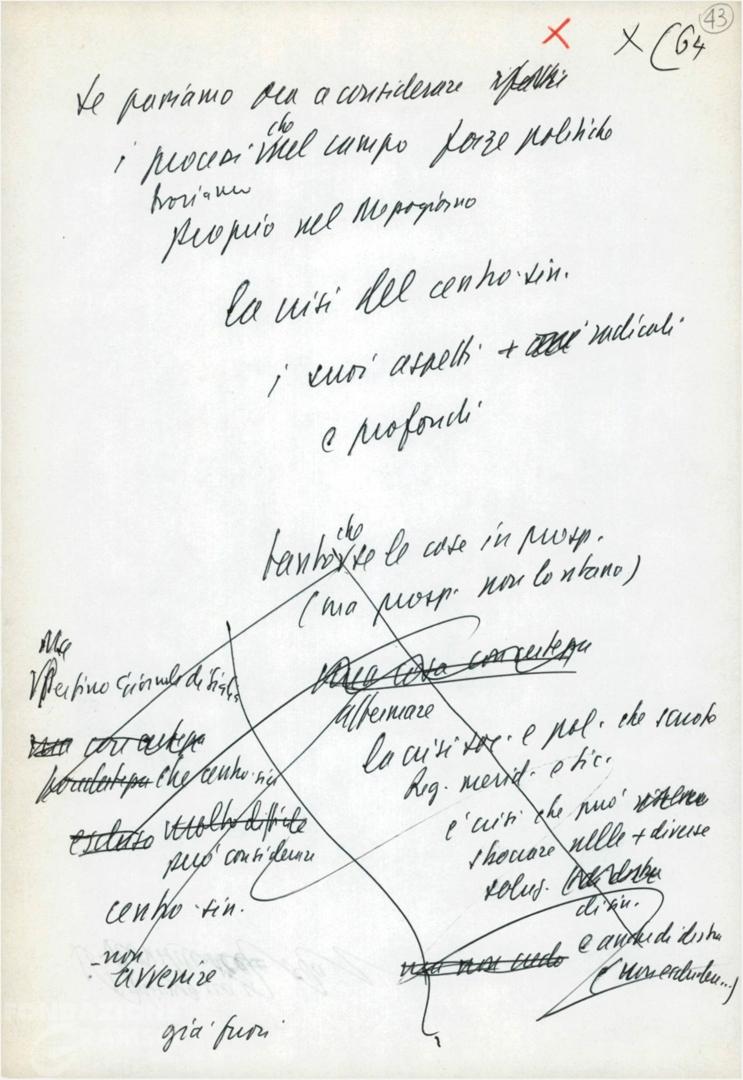 43
X X (64
se passiamo ora a considerare
i processi che nel campo forze politiche
troviamo
proprio nel Mezzogiorno
la crisi del centro-sin.
i suoi aspetti + radicali
e profondi
tanto che se le cose in prosp.
(ma prosp. non lontana)
una cosa con certezza
affermare
la crisi soc. e pol. che scuote
Reg. merid. e sic.
è crisi che può
sboccare nelle + diverse
soluz.
di sin.
e anche di destra
ma non credo
Perfino Giornale di Sicilia
con certezza
che centro-sin
escluso molto difficile
può considerare
centro-sin.
- non
avvenire
già fuori